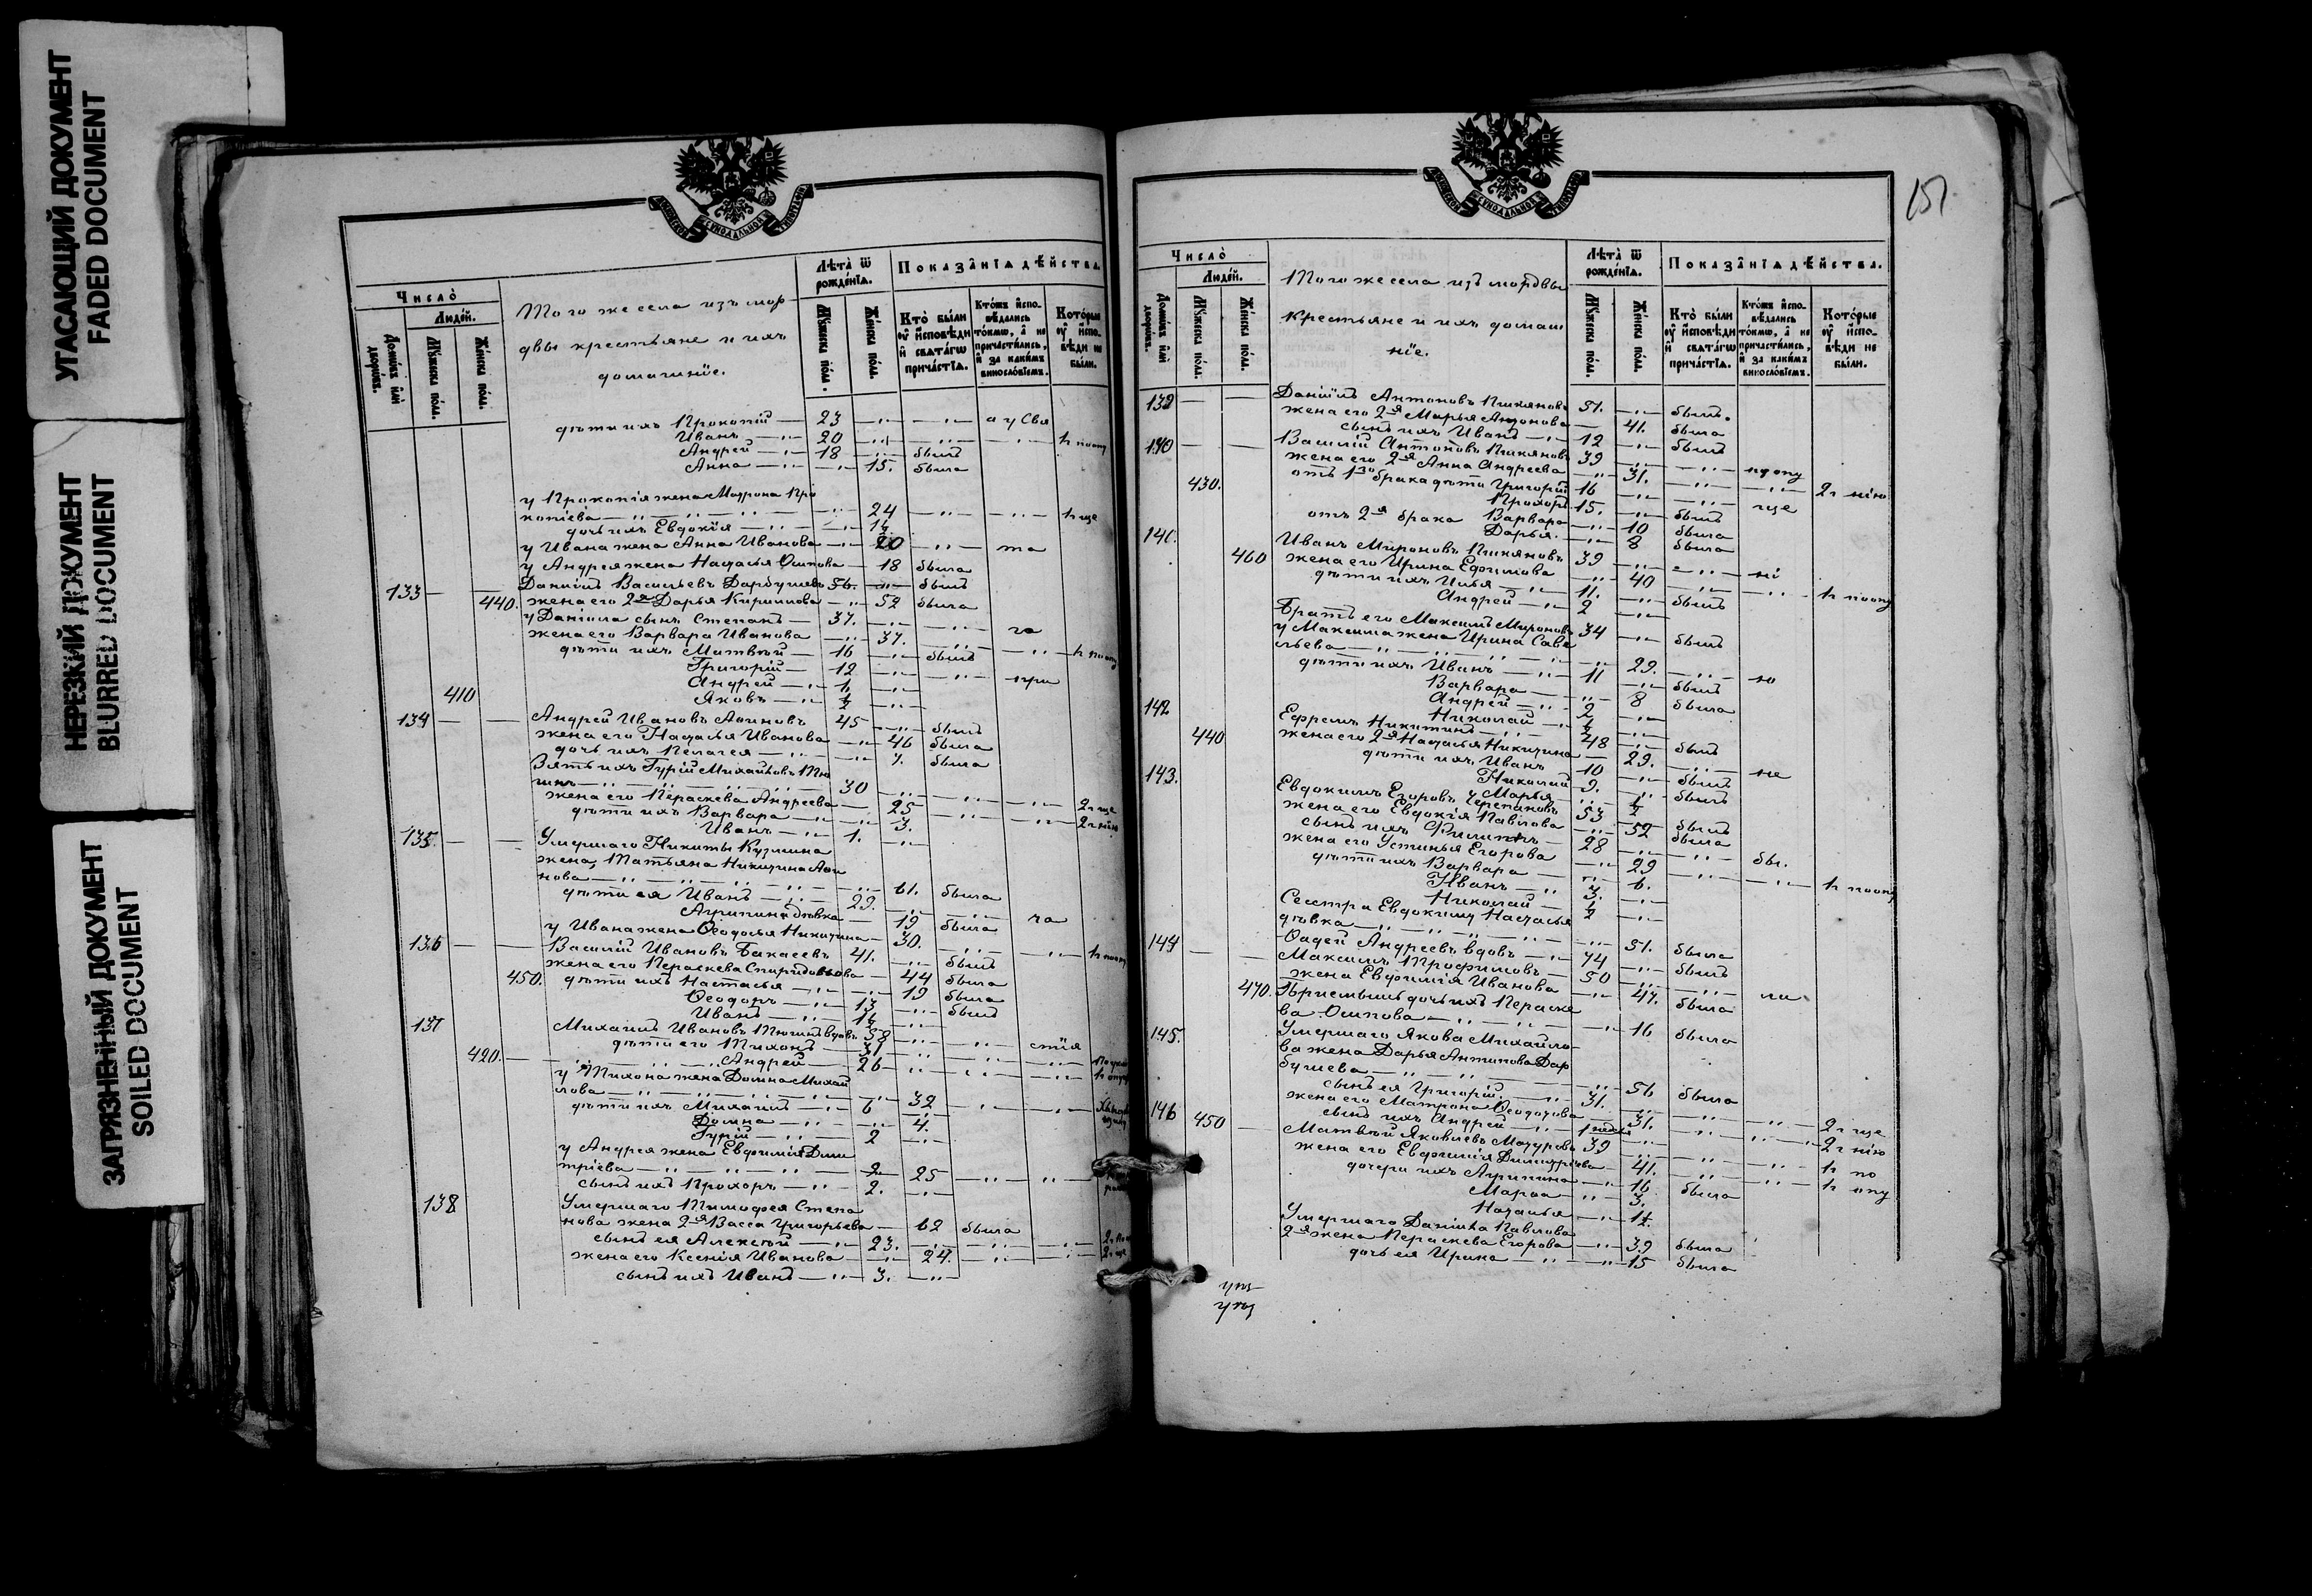 УГАСАЮЩИЙ ДОКУМЕНТ
FADED DOCUMENT
НЕРЕЗКИЙ ДОКУМЕНТ
BLURRED DOCUMENT
ЗАГРЯЗНЕННЫЙ ДОКУМЕНТ
SOILED DOCUMENT
Число̀
Людéй.
Домѡвъ или дворѡвъ.
Мꙋжеска полꙋ.
Женска полꙋ.
Того же села изъ мор
двы крестьяне и ихъ
домашніе.
Лѣта̀ ѿ рождéнїѧ.
Мꙋжеска полꙋ.
Женска полꙋ.
Показа̑нїѧ дѣ́йства.
Кто̀ были ᲂу҆ и҆сповѣди и҆ свѧта́гѡ прича́стїѧ.
Кто́жъ и҆спо-вѣдались то́кмѡ, а҆ не причасти́лись, и҆ за каки́мъ винослóвїемъ.
Кото́рые ᲂу҆ и҆спо-вѣди не были.
дѣти ихъ Прокопій — 23
Иванъ — 20
Андрей — 18 былъ
Анна — 15. была
у Прокопія жена Матрона Про
копіева — 24
дочь ихъ Евдокія — 1/2
у Ивана жена Анна Иванова — 20
у Андрея жена Наталья Осипова — 18 была
133 — Даніилъ Васильевъ Дарбушевъ 56. былъ
440. жена его 2я Дарья Кириллова — 52 была
у Даніила сынъ Степанъ — 37.
жена его Варвара Иванова — 37.
дѣти ихъ Матвѣй — 16 былъ
Григорій — 12
Андрей — 1.
410 Яковъ — 1/2
134 — Андрей Ивановъ 45 былъ
жена его Наталья Иванова — 46 была
дочь ихъ Пелагея — 7. была
Зять ихъ Гурій Михайловъ Тю
шинъ — 30
жена его Пераскева Андреева — 25
дѣти ихъ Варвара — 3.
Иванъ — 1.
135. — Умершаго Никиты Кузмина
жена, Татьяна Никитина
нова — 61. была
дѣти ея Иванъ — 29.
Агрипина дѣвка — 19 была
у Ивана жена Ѳеодосья Никитина — 30.
136 — Василій Ивановъ Бакаевъ 41. былъ
жена его Пераскева Спиридонова — 44 была
450. дѣти ихъ Настасья — 19 была
Ѳеодоръ — 13 былъ
Иванъ — 1 1/2
137 Михаилъ Ивановъ Тюшинъ вдовъ 58
дѣти его Тихонъ — 31
420. — Андрей — 26
у Тихона жена Домна Михай
лова — 32
дѣти ихъ Михаилъ — 6
Домна — 4.
Гурій — 2
у Андрея жена Евфимія Дми
тріева — 25
сынъ ихъ Прохоръ — 2.
138 Умершаго Тимофея Степа
нова жена 2я Васса Григорьева — 62 была
сынъ ея Алексѣй — 23.
жена его Ксенія Иванова — 24.
сынъ ихъ Иванъ — 3.
151
Число̀
Людéй.
Домѡвъ или дворѡвъ.
Мꙋжеска полꙋ.
Женска полꙋ.
Того же села изъ мордвы
крестьяне и ихъ домаш
ніе.
Лѣта̀ ѿ рождéнїѧ.
Мꙋжеска полꙋ.
Женска полꙋ.
Показа̑нїѧ дѣ́йства.
Кто̀ были ᲂу҆ и҆сповѣди и҆ свѧта́гѡ прича́стїѧ.
Кто́жъ и҆спо-вѣдались то́кмѡ, а҆ не причасти́лись, и҆ за каки́мъ винослóвїемъ.
Кото́рые ᲂу҆ и҆спо-вѣди не были.
139 — Даніилъ Антоновъ Пиксяновъ 51. былъ.
жена его 2я Марья Антонова — 41. была
сынъ ихъ Иванъ — 12 былъ
140 — Василій Антоновъ Пиксяновъ 39
жена его 2я Анна Андреева — 31.
430. отъ 1го брака дѣти Григорій 16
Прохоръ 15. былъ
отъ 2я брака Варвара — 10 была
Дарья. — 8 была
141. Иванъ Мироновъ Пиксяновъ 39
460 жена его Ирина Ефимова — 40
дѣти ихъ Илья — 11. былъ
Андрей — 2
Братъ его Максимъ Мироновъ 34 былъ
у Максима жена Ирина Саве
льева — 29.
дѣти ихъ Иванъ — 11 былъ
Варвара — 8 была
Андрей — 2
Николай — 1/2
142 Ефремъ Никитинъ — 48 былъ
440 жена его 2я Наталья Никитина — 29.
дѣти ихъ Иванъ 10 былъ
Николай 9. былъ
Марья — 1/2
143. Евдокимъ Егоровъ Черепановъ 53 былъ
жена его Евдокія Павлова — 52 была
сынъ ихъ Филиппъ — 28
жена его Устинья Егорова — 29
дѣти ихъ Варвара — 6.
Иванъ — 3.
Николай — 1/2
Сестра Евдокиму Наталья
дѣвка — 51. была
144 — Фадей Андреевъ вдовъ — 74 былъ
Максимъ Трофимовъ — 50
жена Евфимія Иванова — 47. была
470. Пріемышъ дочь ихъ Пераске
ва Осипова — 16 была
145. Умершаго Якова Михайло-
ва жена Дарья Антипова Дар
бушева — 56 была
сынъ ея Григорій. — 31.
жена его Матрона Ѳеодотова — 31.
сынъ ихъ Андрей —
146 450 — Матвѣй Яковлевъ 39
жена его Евфимія Димитріева — 41.
дочери ихъ Агрипина — 16 была
Марѳа — 3.
Наталья — 1 1/2
Умершаго Даніила Павлова
2я жена Пераскева Егорова — 39 была
дочь ея Ирина — 15 была